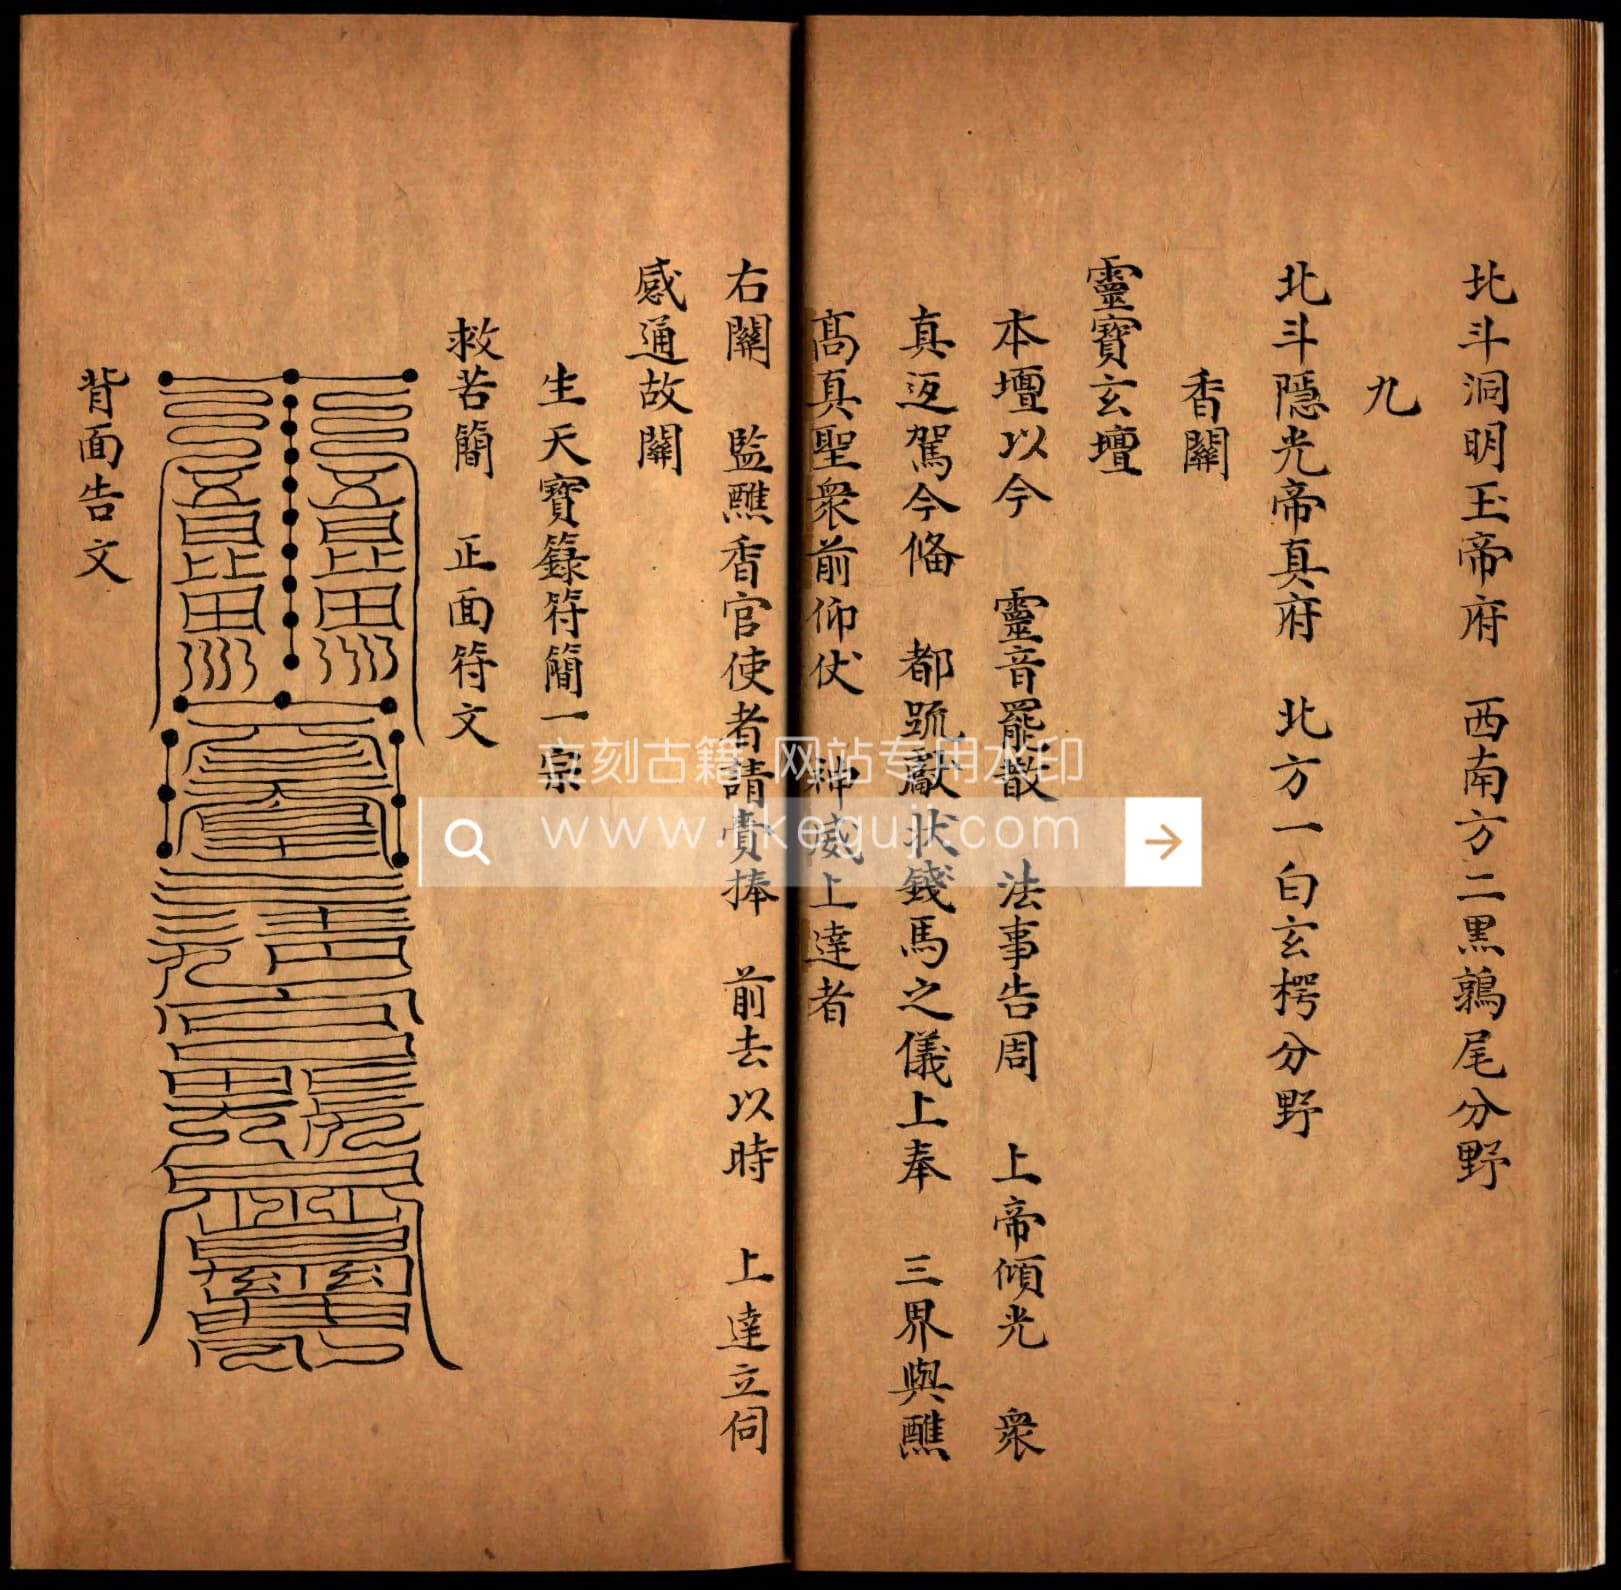 北斗洞明玉帝府　西南方二黑鶉尾分野
九
北斗隱光帝真府　北方一白玄枵分野
香關
靈寶玄壇
本壇以今　靈音罷散　法事告周　上帝傾光　衆
真返駕今俻　都疏獻状錢馬之儀上奉　三界與醮
髙真聖衆前仰伏　神威上達者
右關　監醮香官使者請賫捧　前去以時　上達立伺
感通故關
生天寶籙符簡一宗
救苦簡　正面符文
背面告文
立刻古籍 网站专用水印
www.likeguji.com